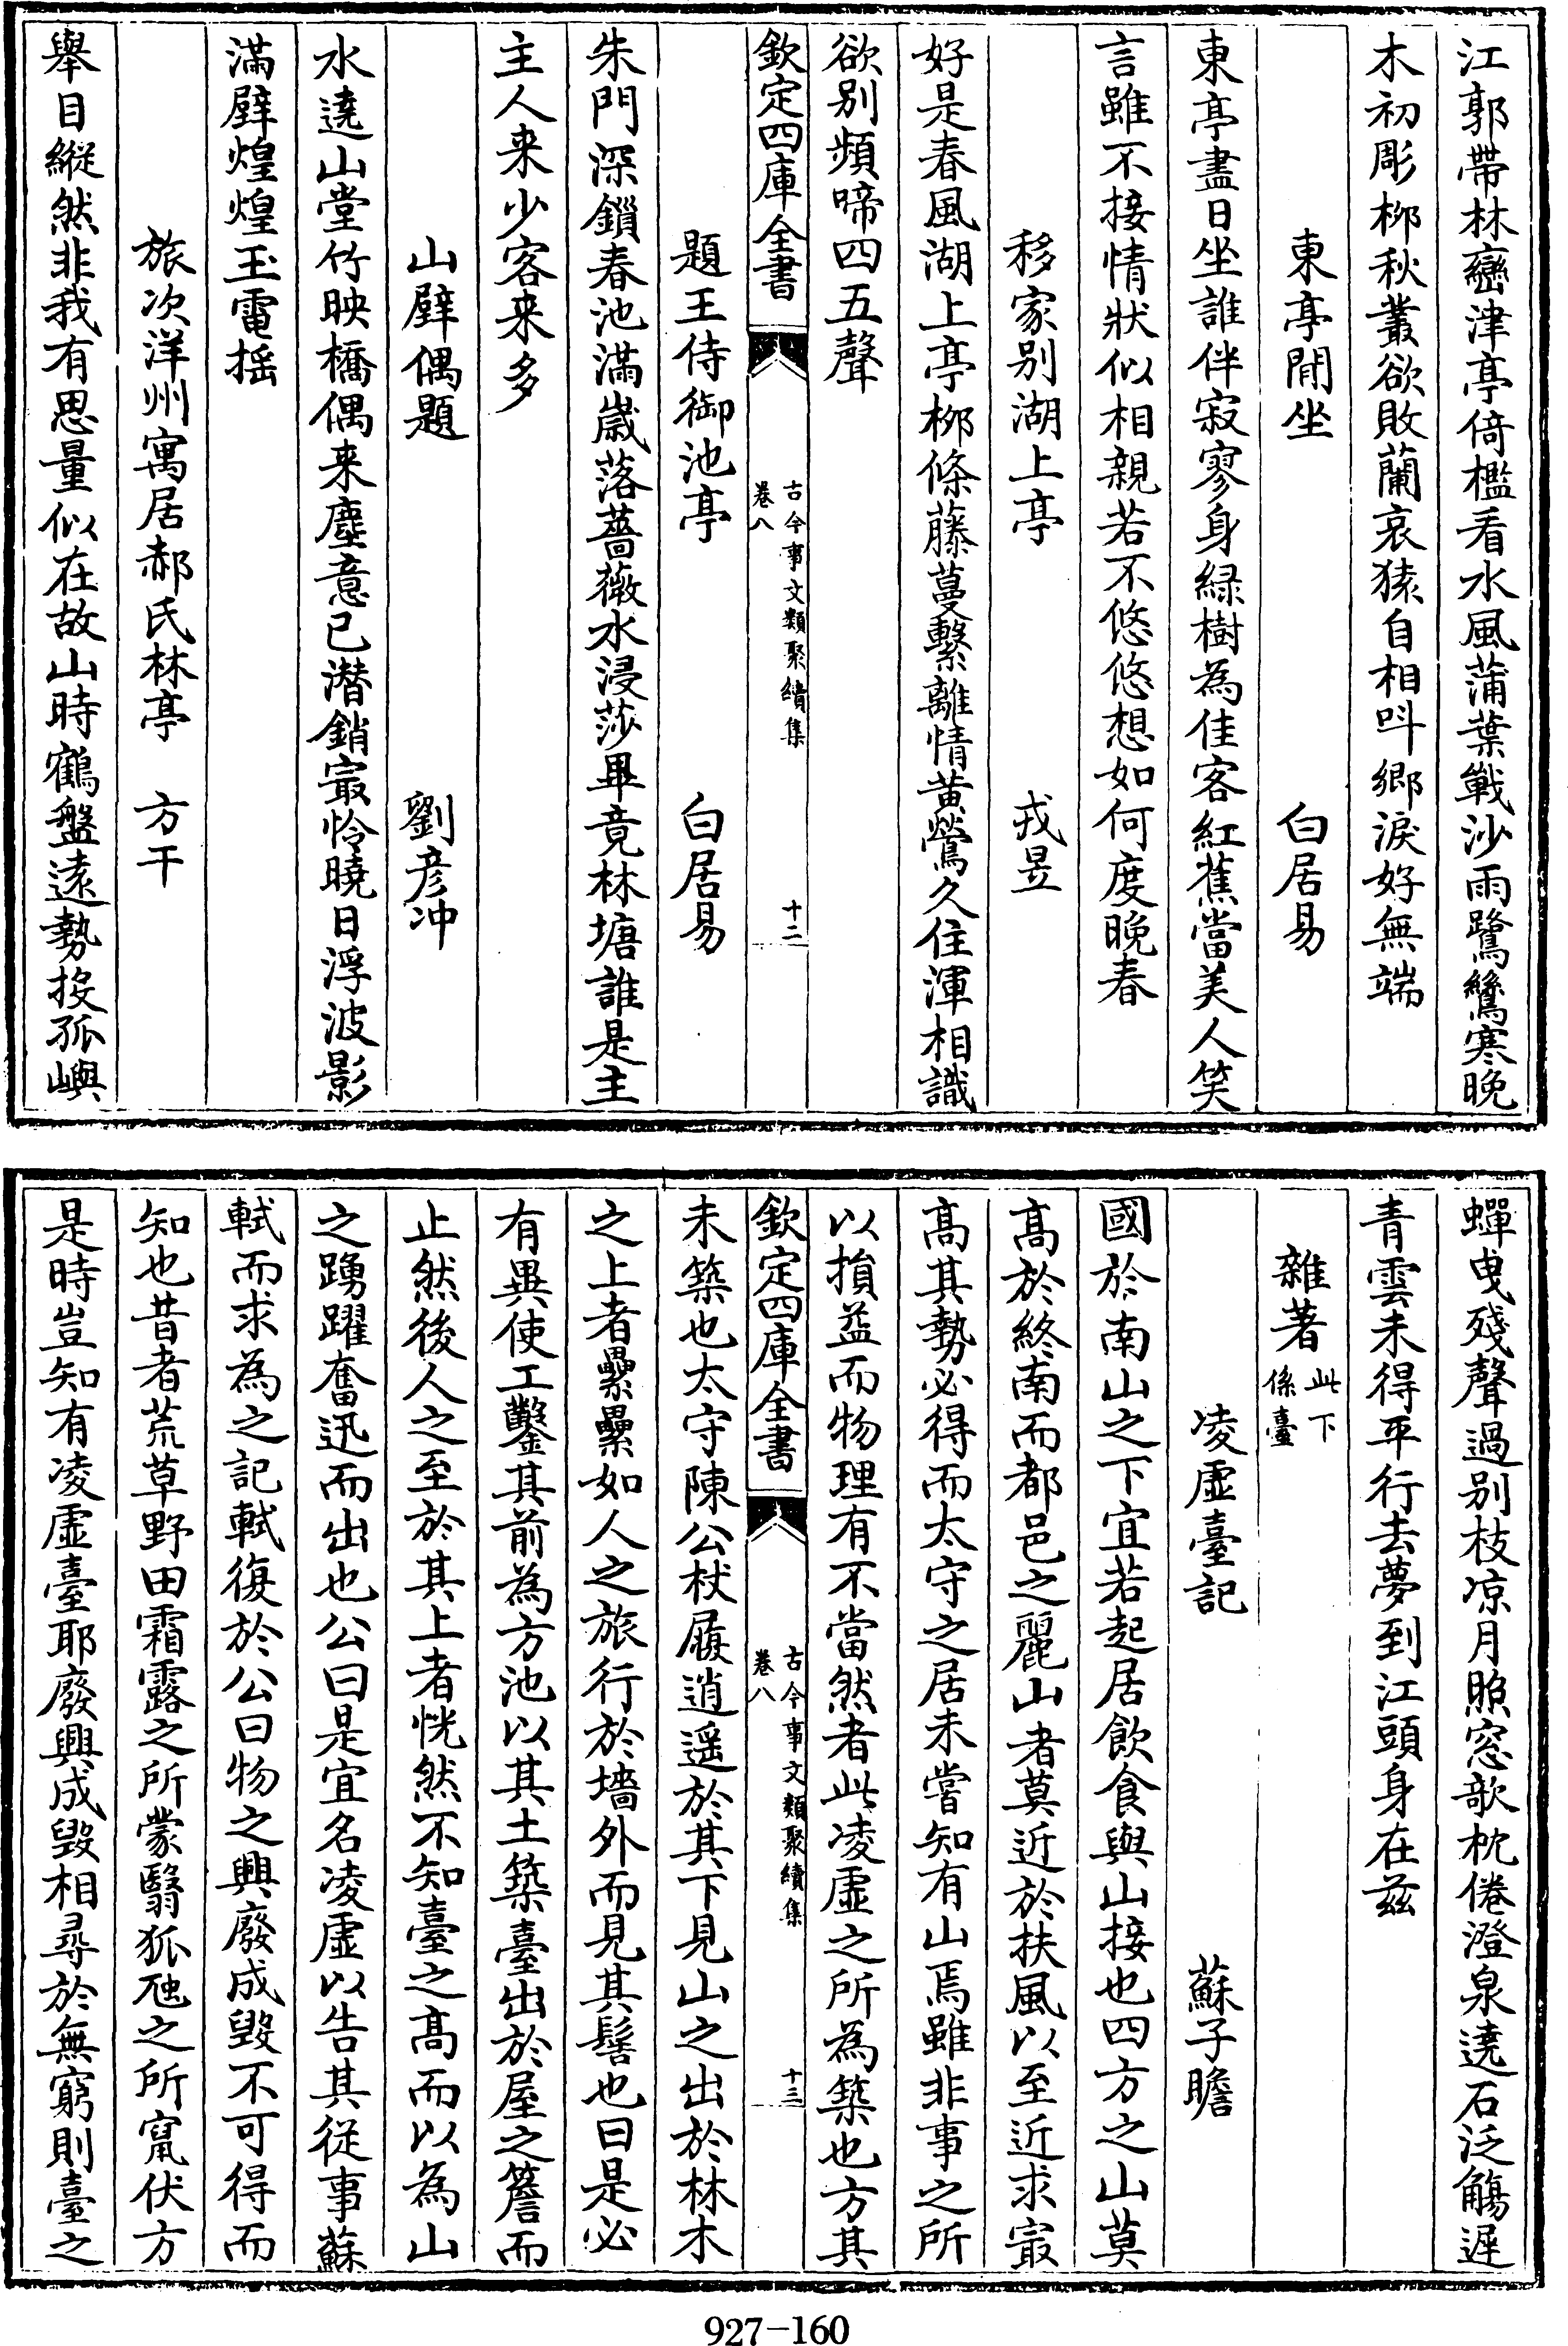 江郭帶林巒津亭倚檻看水風蒲葉戰沙雨鷺鷥寒晚
木初彫栁秋叢欲敗蘭哀猿自相呌鄉淚好無端
東亭閒坐 白居易
東亭盡日坐誰伴寂寥身緑樹為佳客紅蕉當美人笑
言雖不接情狀似相親若不悠悠想如何度晚春
移家别湖上亭 戎昱
好是春風湖上亭栁條藤蔓繫離情黄鶯久住渾相識
欲别頻啼四五聲
欽定四庫全書 古今事文類聚續集 卷八 十二
題王侍御池亭 白居易
朱門深鎻春池滿歳落薔薇水浸莎畢竟林塘誰是主
主人来少客来多
山壁偶題 劉彦冲
水遶山堂竹映橋偶来塵意已潜銷㝡怜曉日浮波影
滿壁煌煌玉電揺
旅次洋州寓居郝氏林亭 方干
舉目縱然非我有思量似在故山時鶴盤逺勢投孤嶼
蟬曳殘聲過别枝凉月照窓欹枕倦澄泉遶石泛觴遲
青雲未得平行去夢到江頭身在兹
雜著 此下係臺
凌虛臺記 蘇子瞻
國於南山之下宜若起居飲食與山接也四方之山莫
髙於終南而都邑之麗山者莫近於扶風以至近求㝡
髙其勢必得而太守之居未嘗知有山焉雖非事之所
以損益而物理有不當然者此凌虛之所為築也方其
欽定四庫全書 古今事文類聚續集 卷八 十三
未築也太守陳公杖屨逍遥於其下見山之出於林木
之上者纍纍如人之旅行於墻外而見其髻也曰是必
有異使工鑿其前為方池以其土築臺出於屋之簷而
止然後人之至於其上者恍然不知臺之髙而以為山
之踴躍奮迅而出也公曰是宜名凌虛以告其從事蘇
軾而求為之記軾復於公曰物之興廢成毁不可得而
知也昔者荒草野田霜露之所蒙翳狐虺之所竄伏方
是時豈知有凌虛臺耶廢興成毁相尋於無窮則臺之
927-160